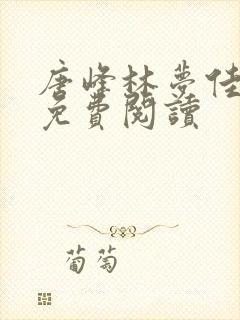 唐峰林夢佳
免費閱讀
葡萄